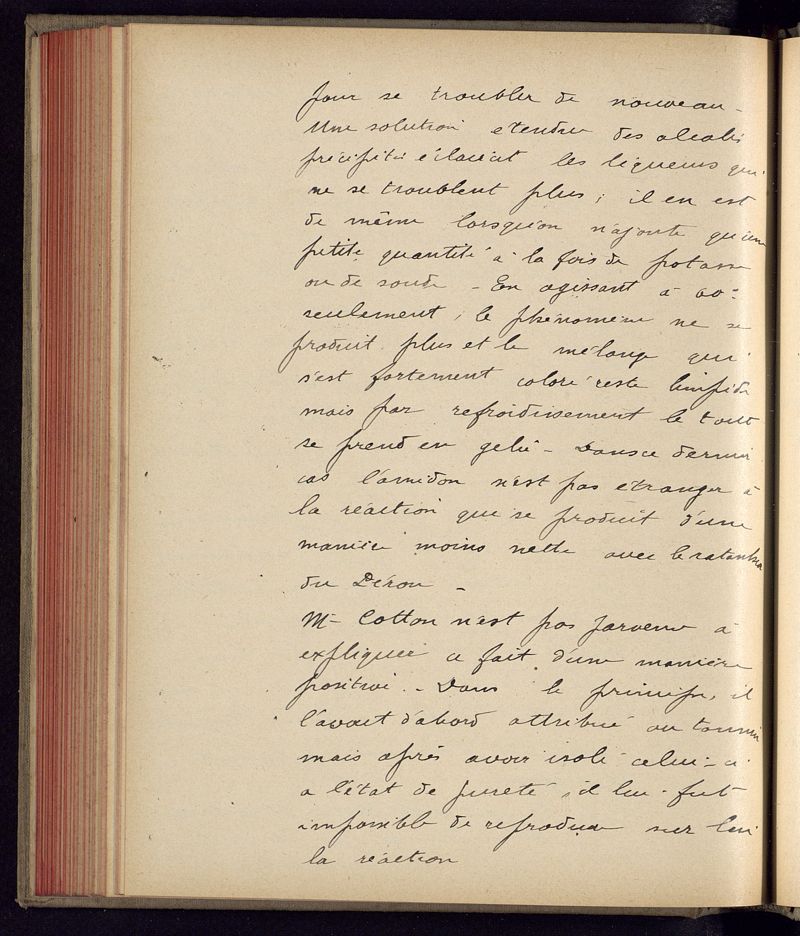 pour se troubler de nouveau -
Une solution etendue des alcalis
précipités éclaircit les liqueurs qui
ne se troublent plus ; il en est
de même lorsqu'on n'ajoute qu'une
petite quantité à la fois de potasse
ou de soude - En agissant à 60°
seulement, le phénomène ne se
produit plus et le mélange qui
s'est fortement coloré reste limpide
mais par refroidissement le tout
se prend en gelée - Dans ce dernier
cas l'amidon n'est pas etranger à
la réaction qui se produit d'une
manière moins nette avec le ratanhia
du Pérou -
Mr Cotton n'est pas parvenu à
expliquer ce fait d'une manière
positive - Dans le principe, il
l'avait d'abord attribué au tannin
mais après avoir isolé celui-ci
a l'état de pureté, il lui fut
impossible de reproduire sur lui
la réaction